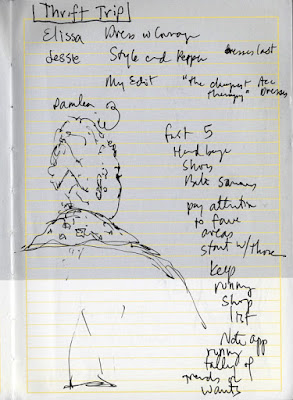 Thrift Trip
Elissa Dress w Courage
Jessie Style and Pepper dresses last
My Edit "the cheapest Acc
therapy" Dresses
Pamela
first 5
Handbags
Shoes
pay attention
to fave
areas
start w/ those
keep
running
shop
list
Note app
running
tally of
trends or
wants